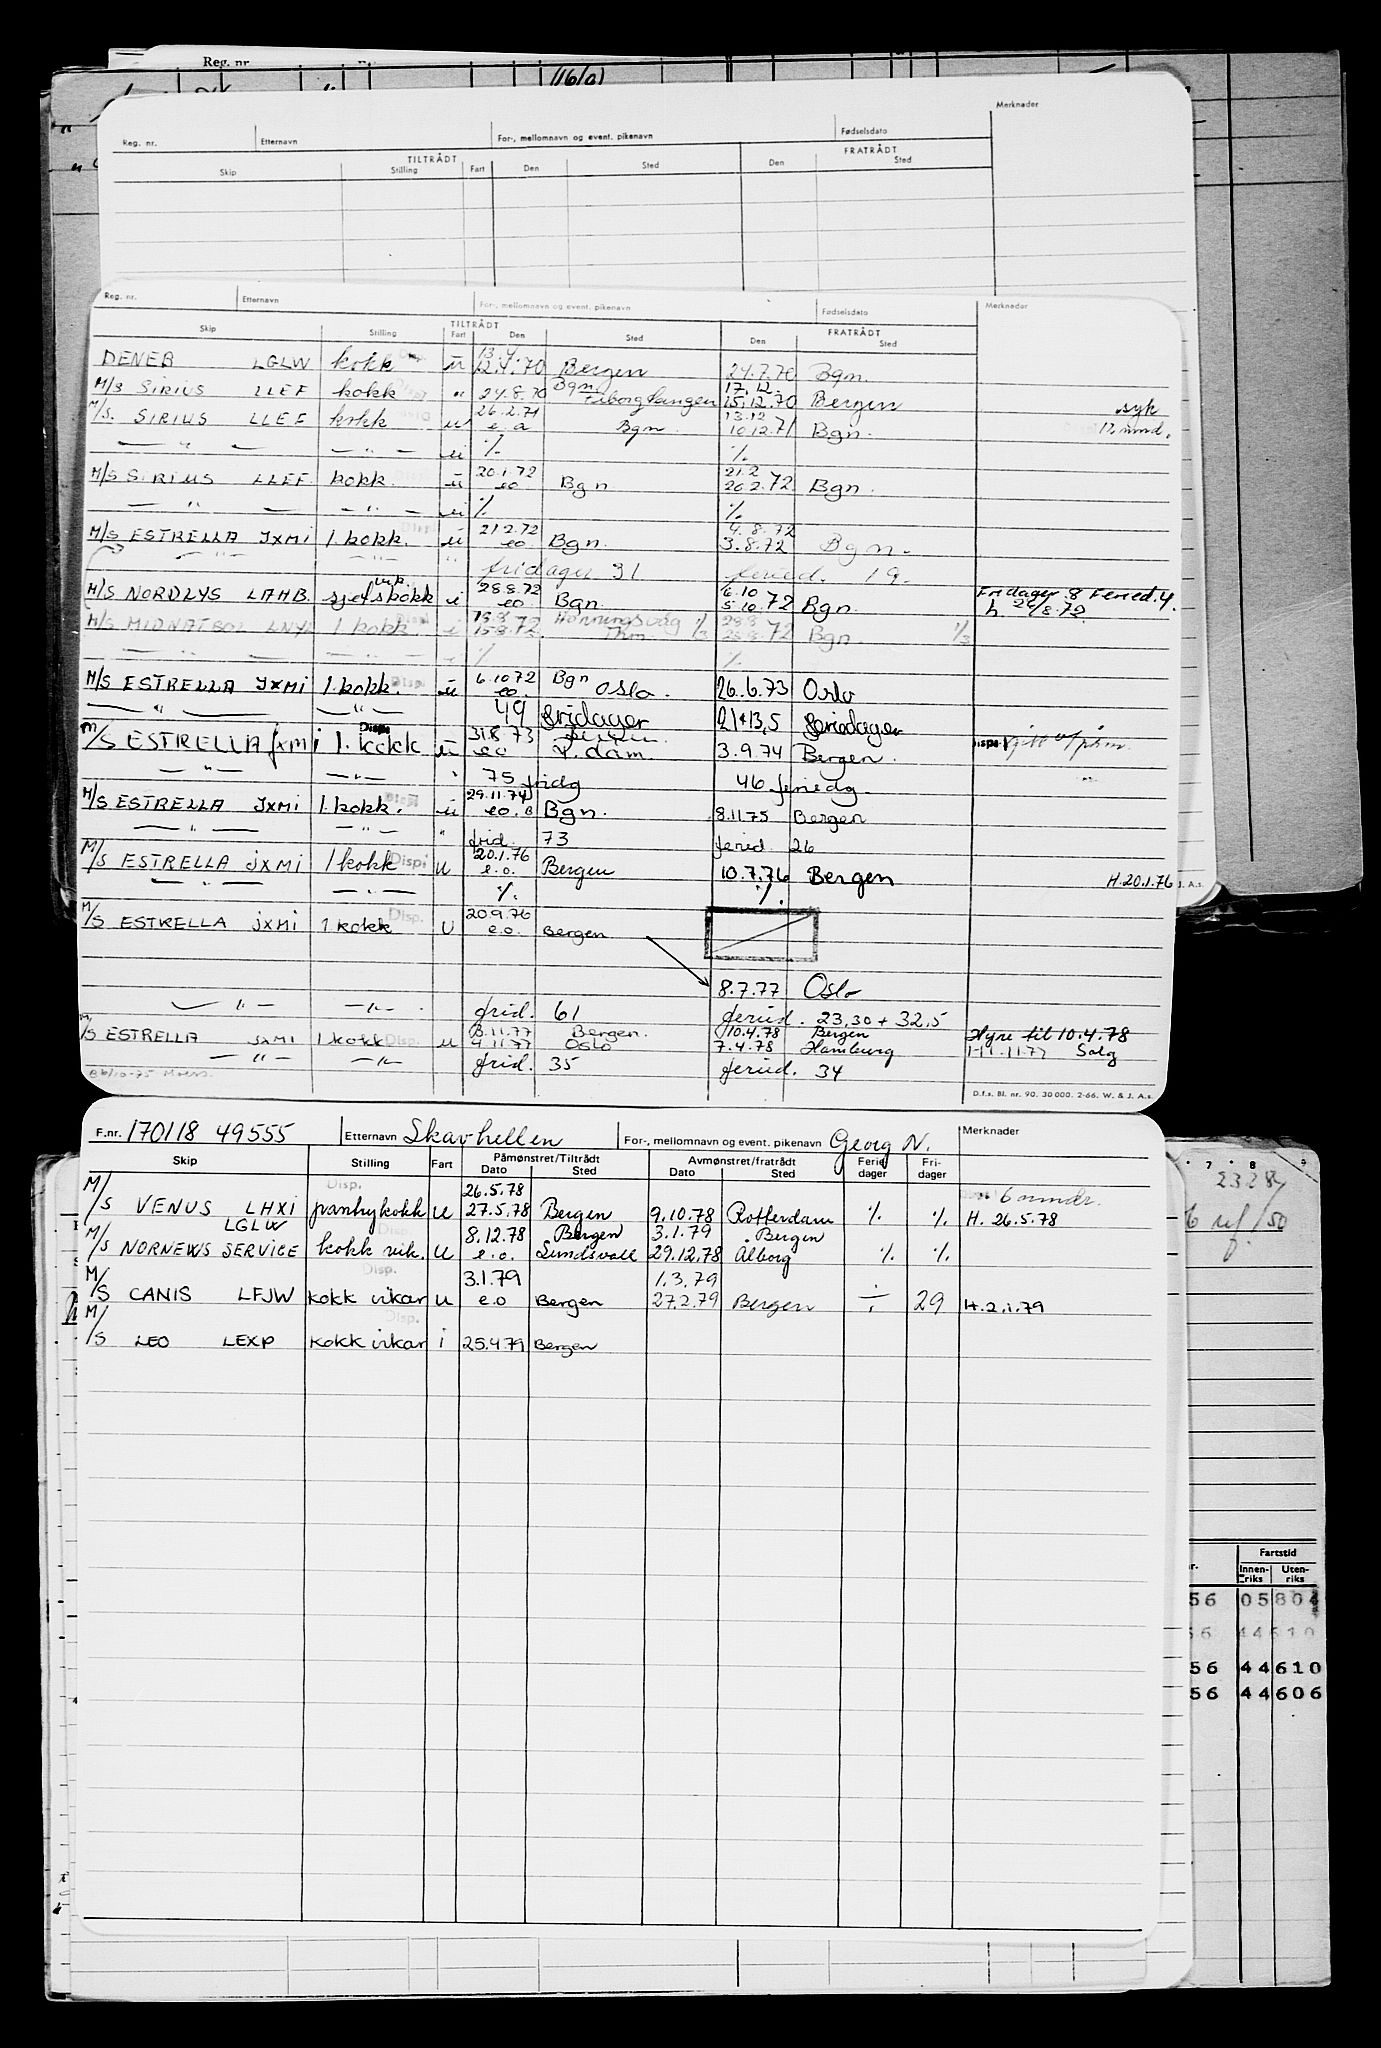 Reg. nr.
116/01
Merknader
Reg. nr. Etternavn For-, mellomnavn og event. pikenavn Fødselsdato
TILTRÅDT FRATRÅDT
Skip Stilling Fart Den Sted Den Sted
Reg. nr. Etternavn For-, mellomnavn og event. pikenavn Fødselsdato Merknader
TILTRÅDT FRATRÅDT
Skip Stilling Fart Den Sted Den Sted
13.4
DENEB LGLW kokk ū 12.4.70 Bergen 24.7.70 Bgm.
Bgm 17.12.
M/S SIRIUS LLEF kokk " 24.8.70 15.12.70 Bergen syk
26.2.71 13.12
M/S. SIRIUS LLEF kokk u e.a Bgn. 10.12.71 Bgn. 12 mnd.
— " — — " — u % %
20.1.72 21.2
M/S SIRIUS LLEF kokk. ū eo Bgn 20.2.72 Bgn.
— " — — " — u % %
21.2.72 4.8.72
M/S ESTRELLA JXMI 1. kokk. ū eo Bgn. 3.8.72 Bgn.
— " — — " — " fridager 31 feried. 19.
vik. 28.8.72 6.10
M/S NORDLYS LAHB. sjefskokk i eo Bgn. 5.10.72 Bgn. Fridager 8 Feried.4.
h 28/8.72.
M/S MIDNATSOL 1 kokk. i 15.8.72 Honningsvåg 1/3 28.8.72 Bgn 1/3
— " — — " — % %
6.10.72 Bgn
M/S ESTRELLA JXMI 1. kokk. Disp ū eo. Oslo. 26.6.73 Oslo
— " — — " — 49 fridager 21+13,5 feriedager
Disp. 31.8.73
M/S ESTRELLA JXMI 1. kokk ū eo R.dam. 3.9.74 Bergen. Dispe
— " — — " — " 75 fridg 46 feriedg.
29.11.74
M/S ESTRELLA JXMI 1. kokk. ū eo. B Bgn. 8.11.75 Bergen
— " — — " — " frid. 73 feried. 26
20.1.76
M/S ESTRELLA JXMI 1 kokk Disp u e.o. Bergen 10.7.76 Bergen H.20.1.76 J. A.s.
— " — — " — % %
20.9.76
M/S ESTRELLA JXMI 1. kokk Disp. U e.o. Bergen
8.7.77 Oslo
— " — — " — frid. 61 feried. 23,30 + 32,5
3.11.77 Bergen. 10.4.78 Bergen Hyre til 10.4.78
M/S ESTRELLA JXMI 1 kokk Disp. u 4.11.77 Oslo 7.4.78 Hamburg H 1.11.77 Salg
— " — — " — frid. 35 feried. 34
D.f.s. Bl. nr. 90. 30 000. 2-66. W. & J. A.s
F.nr. 170118 49555 Etternavn Skavhellen For-, mellomnavn og event. pikenavn Georg N. Merknader
Skip Stilling Fart Påmønstret/Tiltrådt Avmønstret/fratrådt Ferie- Fri-
Dato Sted Dato Sted dager dager
Disp. 26.5.78 6 mndr.
M/S VENUS LHXI pantrykokk u 27.5.78 Bergen 9.10.78 Rotterdam % % H. 26.5.78
LGLW 8.12.78 Bergen 3.1.79 Bergen
M/S NORNEWS SERVICE kokk vik. u e.o. Sundsvall 29.12.78 Ålborg % %
Disp. 3.1.79 1.3.79
M/S CANIS LFJW kokk vikar u e.o Bergen 27.2.79 Bergen ÷ 29 H.2.1.79
Disp.
M/S LEO LEXP kokk vikar i 25.4.79 Bergen
7 8 9
2328
Fartstid
Innen- Uten-
riks riks
56 05 804
56 44 610
56 44 610
56 44 606